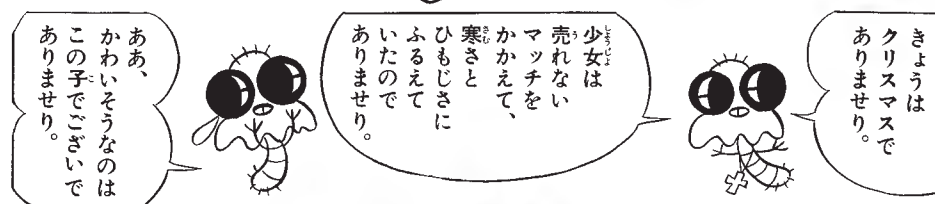 きょうは
クリスマスで
ありませり。
少女は
売れない
マッチを
かかえて、
寒さと
ひもじさに
ふるえて
いたので
ありませり。
ああ、
かわいそうなのは
この子でございで
ありませり。